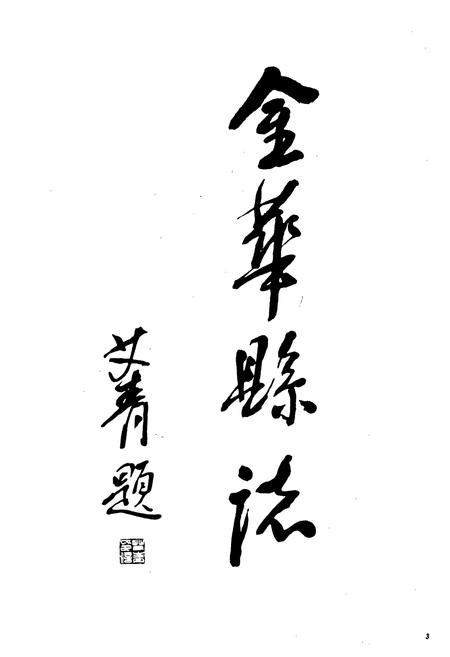 金華縣誌
艾青題
3